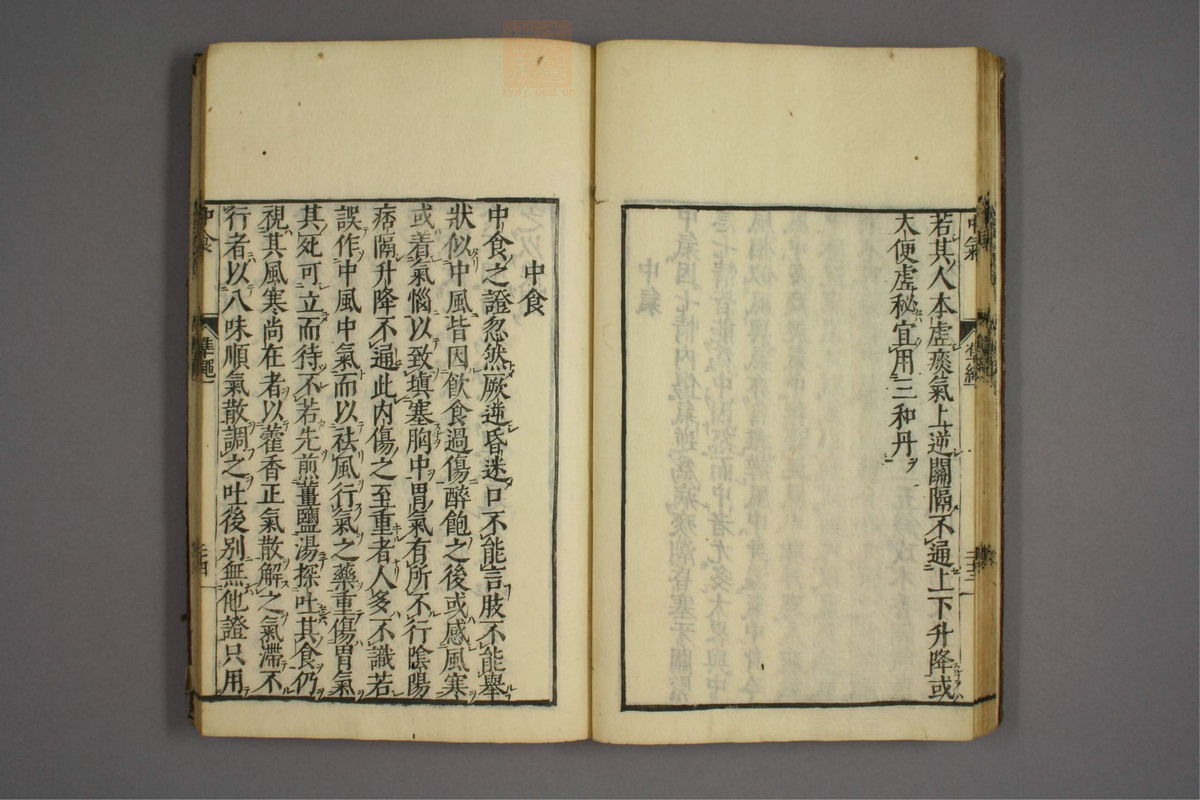 中氣
若其人本虛痰氣上逆關隔不通上下升降或
大便虛秘宜用三和丹
中食
中食之證忽然厥逆昏迷口不能言肢不能舉
狀似中風皆因飮食過傷醉飽之後或感風寒
或着氣惱以致塡塞胸中胃氣有所不行陰陽
痞隔升降不通此內傷之至重者人多不識若
誤作中風中氣而以祛風行氣之藥重傷胃氣
其死可立而待不若先煎薑鹽湯探吐其食仍
視其風寒尚在者以藿香正氣散解之氣滯不
行者以八味順氣散調之吐後別無他證只用
中食
準繩